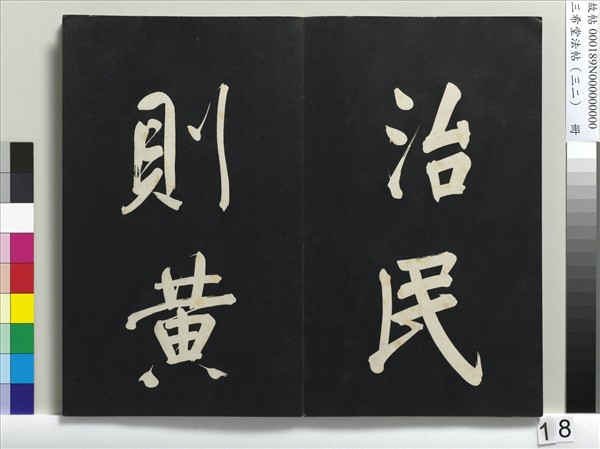 治民
則黃
故帖 000189N000000000
三希堂法帖（三二） 冊
18